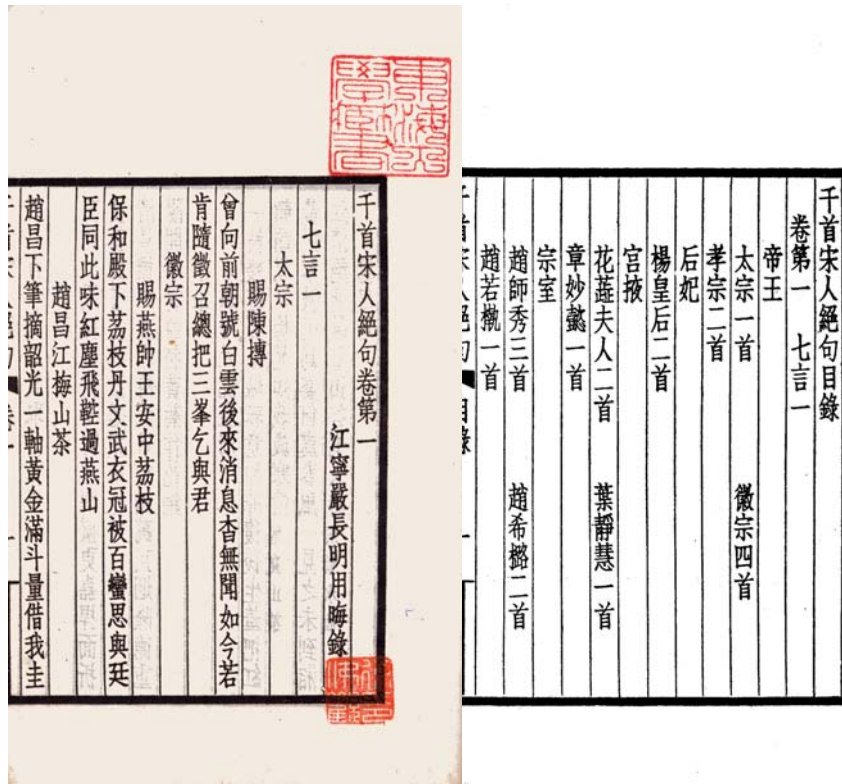 千首宋人絕句目錄
卷第一 七言一
帝王
太宗一首 徽宗四首
孝宗二首
后妃
楊皇后二首
宮掖
花蕋夫人二首 葉靜慧一首
章妙懿一首
宗室
趙師秀三首 趙希㯝二首
趙若 一首
千首宋人絕句 目錄 一
千首宋人絕句卷第一
江寧嚴長明用晦錄
七言一
太宗
賜陳摶
曾向前朝號白雲後來消息杳無聞如今若
肯隨徵召總把三峯乞與君
徽宗
賜燕帥王安中荔枝
保和殿下荔枝丹文武衣冠被百蠻思與廷
臣同此味紅塵飛鞚過燕山
趙昌江梅山茶
趙昌下筆摘韶光一軸黃金滿斗量借我圭
千首宋人絕句 卷一 一